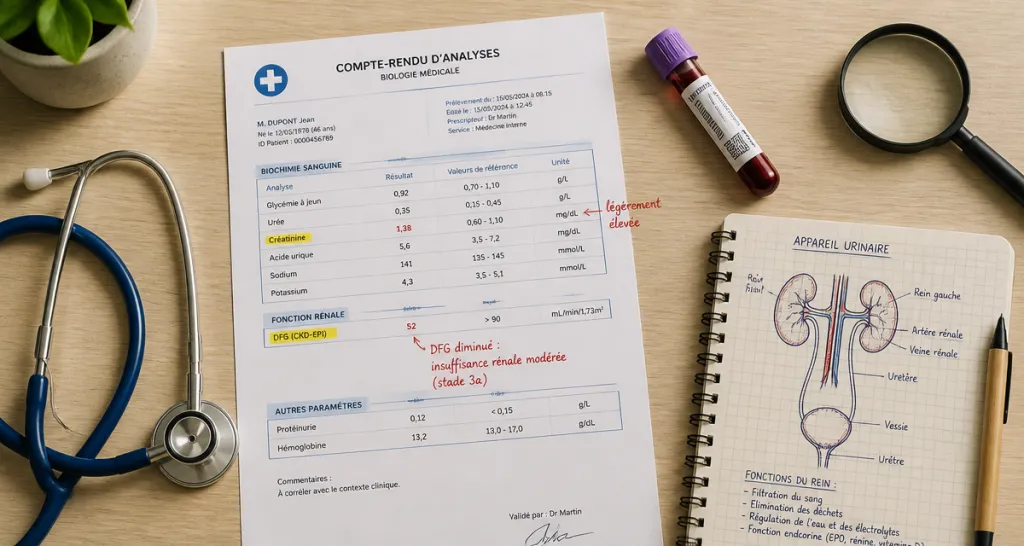 COMPTE-RENDU D'ANALYSES
BIOLOGIE MÉDICALE
M. DUPONT Jean
Né le 12/05/1978 (46 ans)
ID Patient : 0000456789
Prélèvement du : 15/05/2024 à 08:15
Édité le : 15/05/2024 à 12:45
Prescripteur : Dr Martin
Service : Médecine interne
BIOCHIMIE SANGUINE
Analyse Résultat Valeurs de référence Unité
Glycémie à jeun 0,92 0,70 - 1,10 g/L
Urée 0,35 0,15 - 0,45 g/L
Créatinine 1,38 0,60 - 1,10 mg/dL
Acide urique 5,6 3,5 - 7,2 mg/dL
Sodium 141 135 - 145 mmol/L
Potassium 4,3 3,5 - 5,1 mmol/L
légèrement
élevée
FONCTION RÉNALE
DFG (CKD-EPI) 52 > 90 mL/min/1,73m²
DFG diminué :
insuffisance rénale modérée
(stade 3a)
AUTRES PARAMÈTRES
Protéinurie 0,12 < 0,15 g/L
Hémoglobine 13,2 13,0 - 17,0 g/dL
Commentaires :
À corréler avec le contexte clinique.
Validé par : Dr Martin
APPAREIL URINAIRE
Rein
Rein gauche
Artère rénale
Veine rénale
Uretère
Vessie
Urètre
FONCTIONS DU REIN :
- Filtration du sang
- Elimination des déchets
- Régulation de l'eau et des électrolytes
- Fonction endocrine (EPO, rénine, vitamine D)